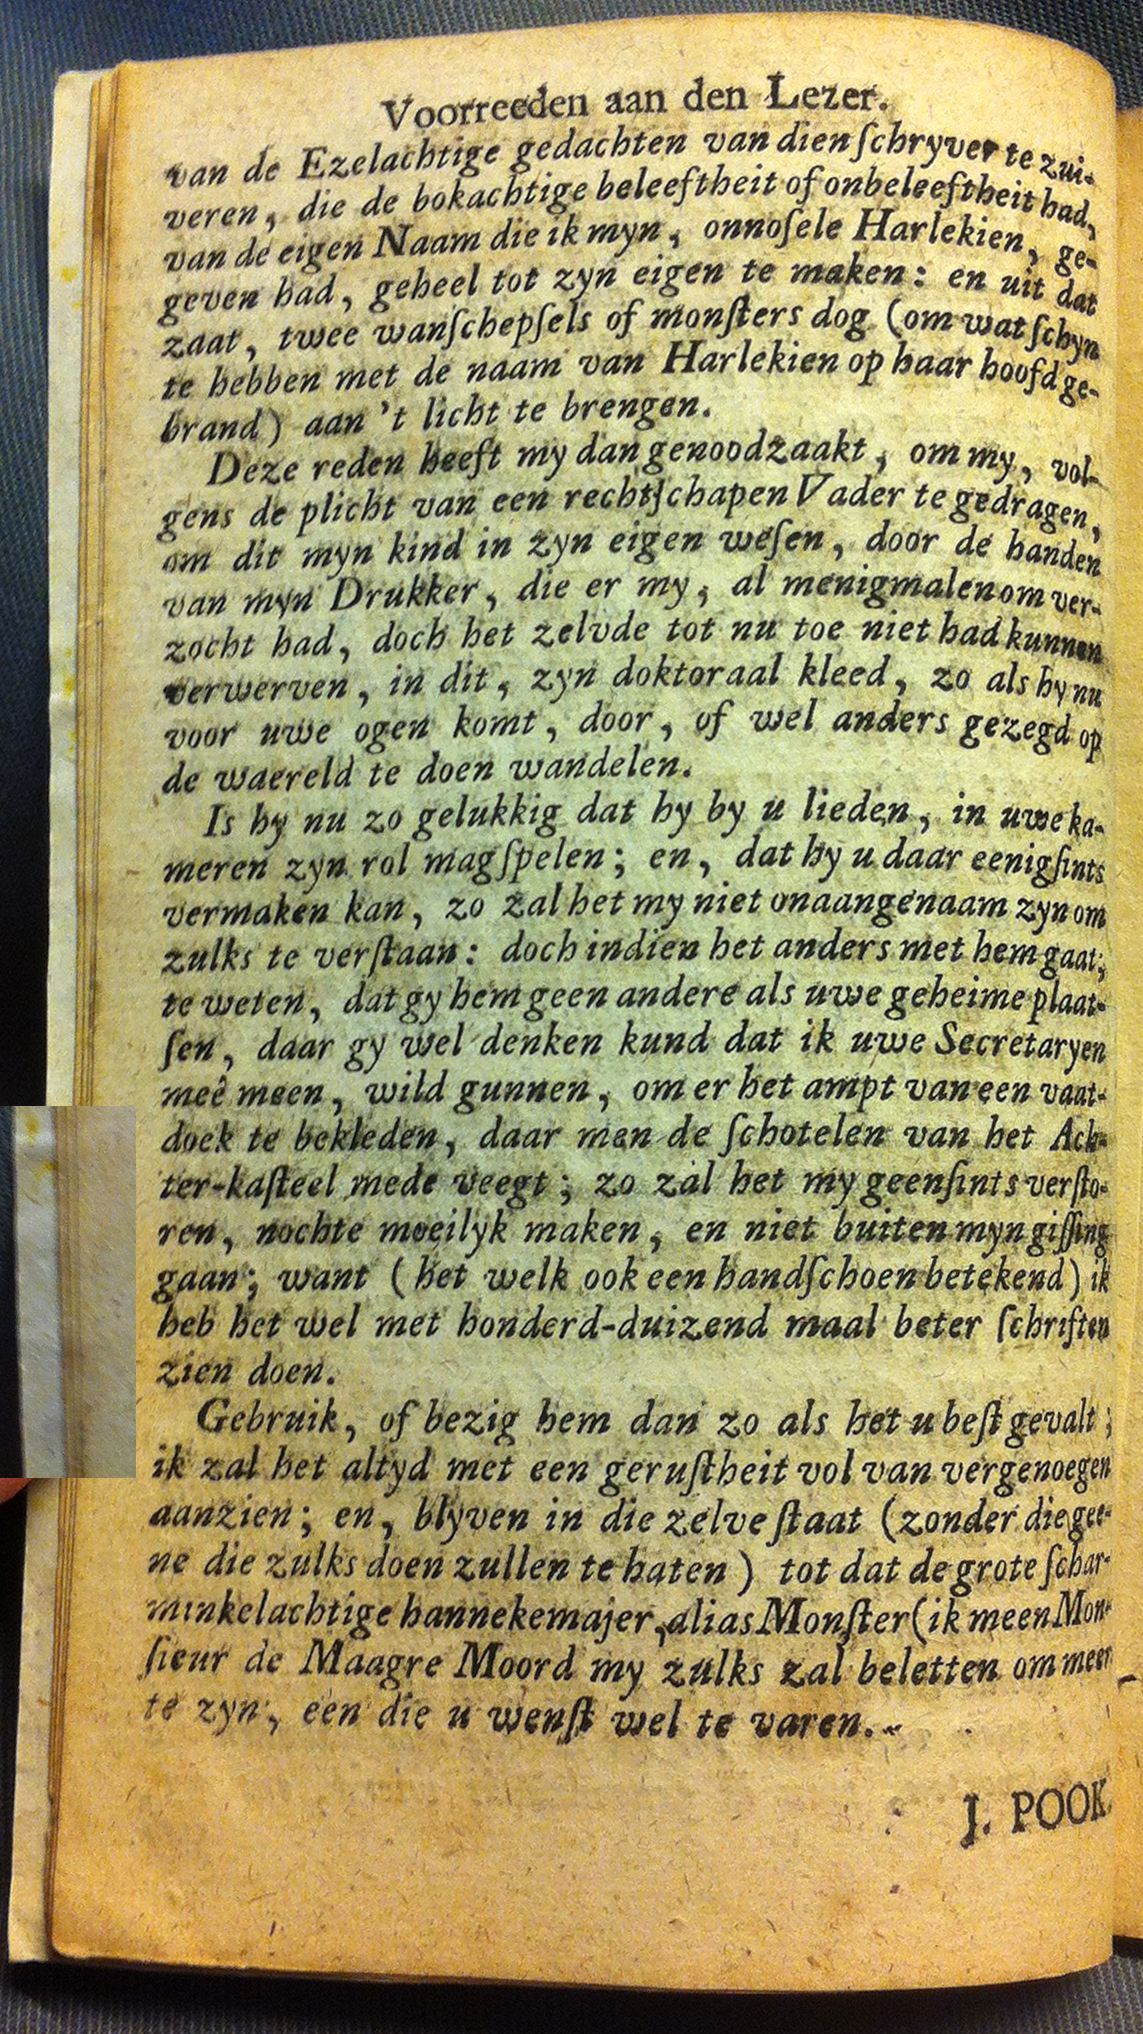 Voorreeden aan den Lezer.
van de Ezelachtige gedachten van dien ſchryver te zui-
veren, die de bokachtige beleeftheit of onbeleeftheit had,
van de eigen Naam die ik myn, onnoſele Harlekien, ge-
geven had, geheel tot zyn eigen te maken: en uit dat
zaat, twee wanſchepſels of monſters dog (om wat ſchyn
te hebben met de naam van Harlekien op haar hoofd ge-
brand) aan 't licht te brengen.
Deze reden heeft my dan genoodzaakt, om my, vol-
gens de plicht van een rechtſchapen Vader te gedragen,
om dit myn kind in zyn eigen weſen, door de handen
van myn Drukker, die er my, al menigmalen om ver-
zocht had, doch het zelvde tot nu toe niet had kunnen
verwerven, in dit, zyn doktoraal kleed, zo als hy nu
voor uwe ogen komt, door, of wel anders gezegd op
de waereld te doen wandelen.
Is hy nu zo gelukkig dat hy by u lieden, in uwe ka-
meren zyn rol mag ſpelen; en, dat hy u daar eenigſints
vermaken kan, zo zal het my niet onaangenaam zyn om
zulks te verſtaan: doch indien het anders met hem gaat;
te weten, dat gy hem geen andere als uwe geheime plaat-
ſen, daar gy wel denken kund dat ik uwe Secretaryen
meê meen, wild gunnen, om er het ampt van een vaat-
doek te bekleden, daar men de ſchotelen van het Ach-
ter-kaſteel mede veegt; zo zal het my geenſints verſto-
ren, nochte moeilyk maken, en niet buiten myn giſſing
gaan; want (het welk ook een handſchoen betekend) ik
heb het wel met honderd-duizend maal beter ſchriften
zien doen.
Gebruik, of bezig hem dan zo als het u beſt gevalt;
ik zal het altyd met een geruſtheit vol van vergenoegen
aanzien; en, blyven in die zelve ſtaat (zonder die gee-
ne die zulks doen zullen te haten) tot dat de grote ſchar-
minkelachtige hannekemajer, alias Monſter (ik meen Mon-
ſieur de Maagre Moord my zulks zal beletten om meer
te zyn, een die u wenſt wel te varen.
J. POOK.